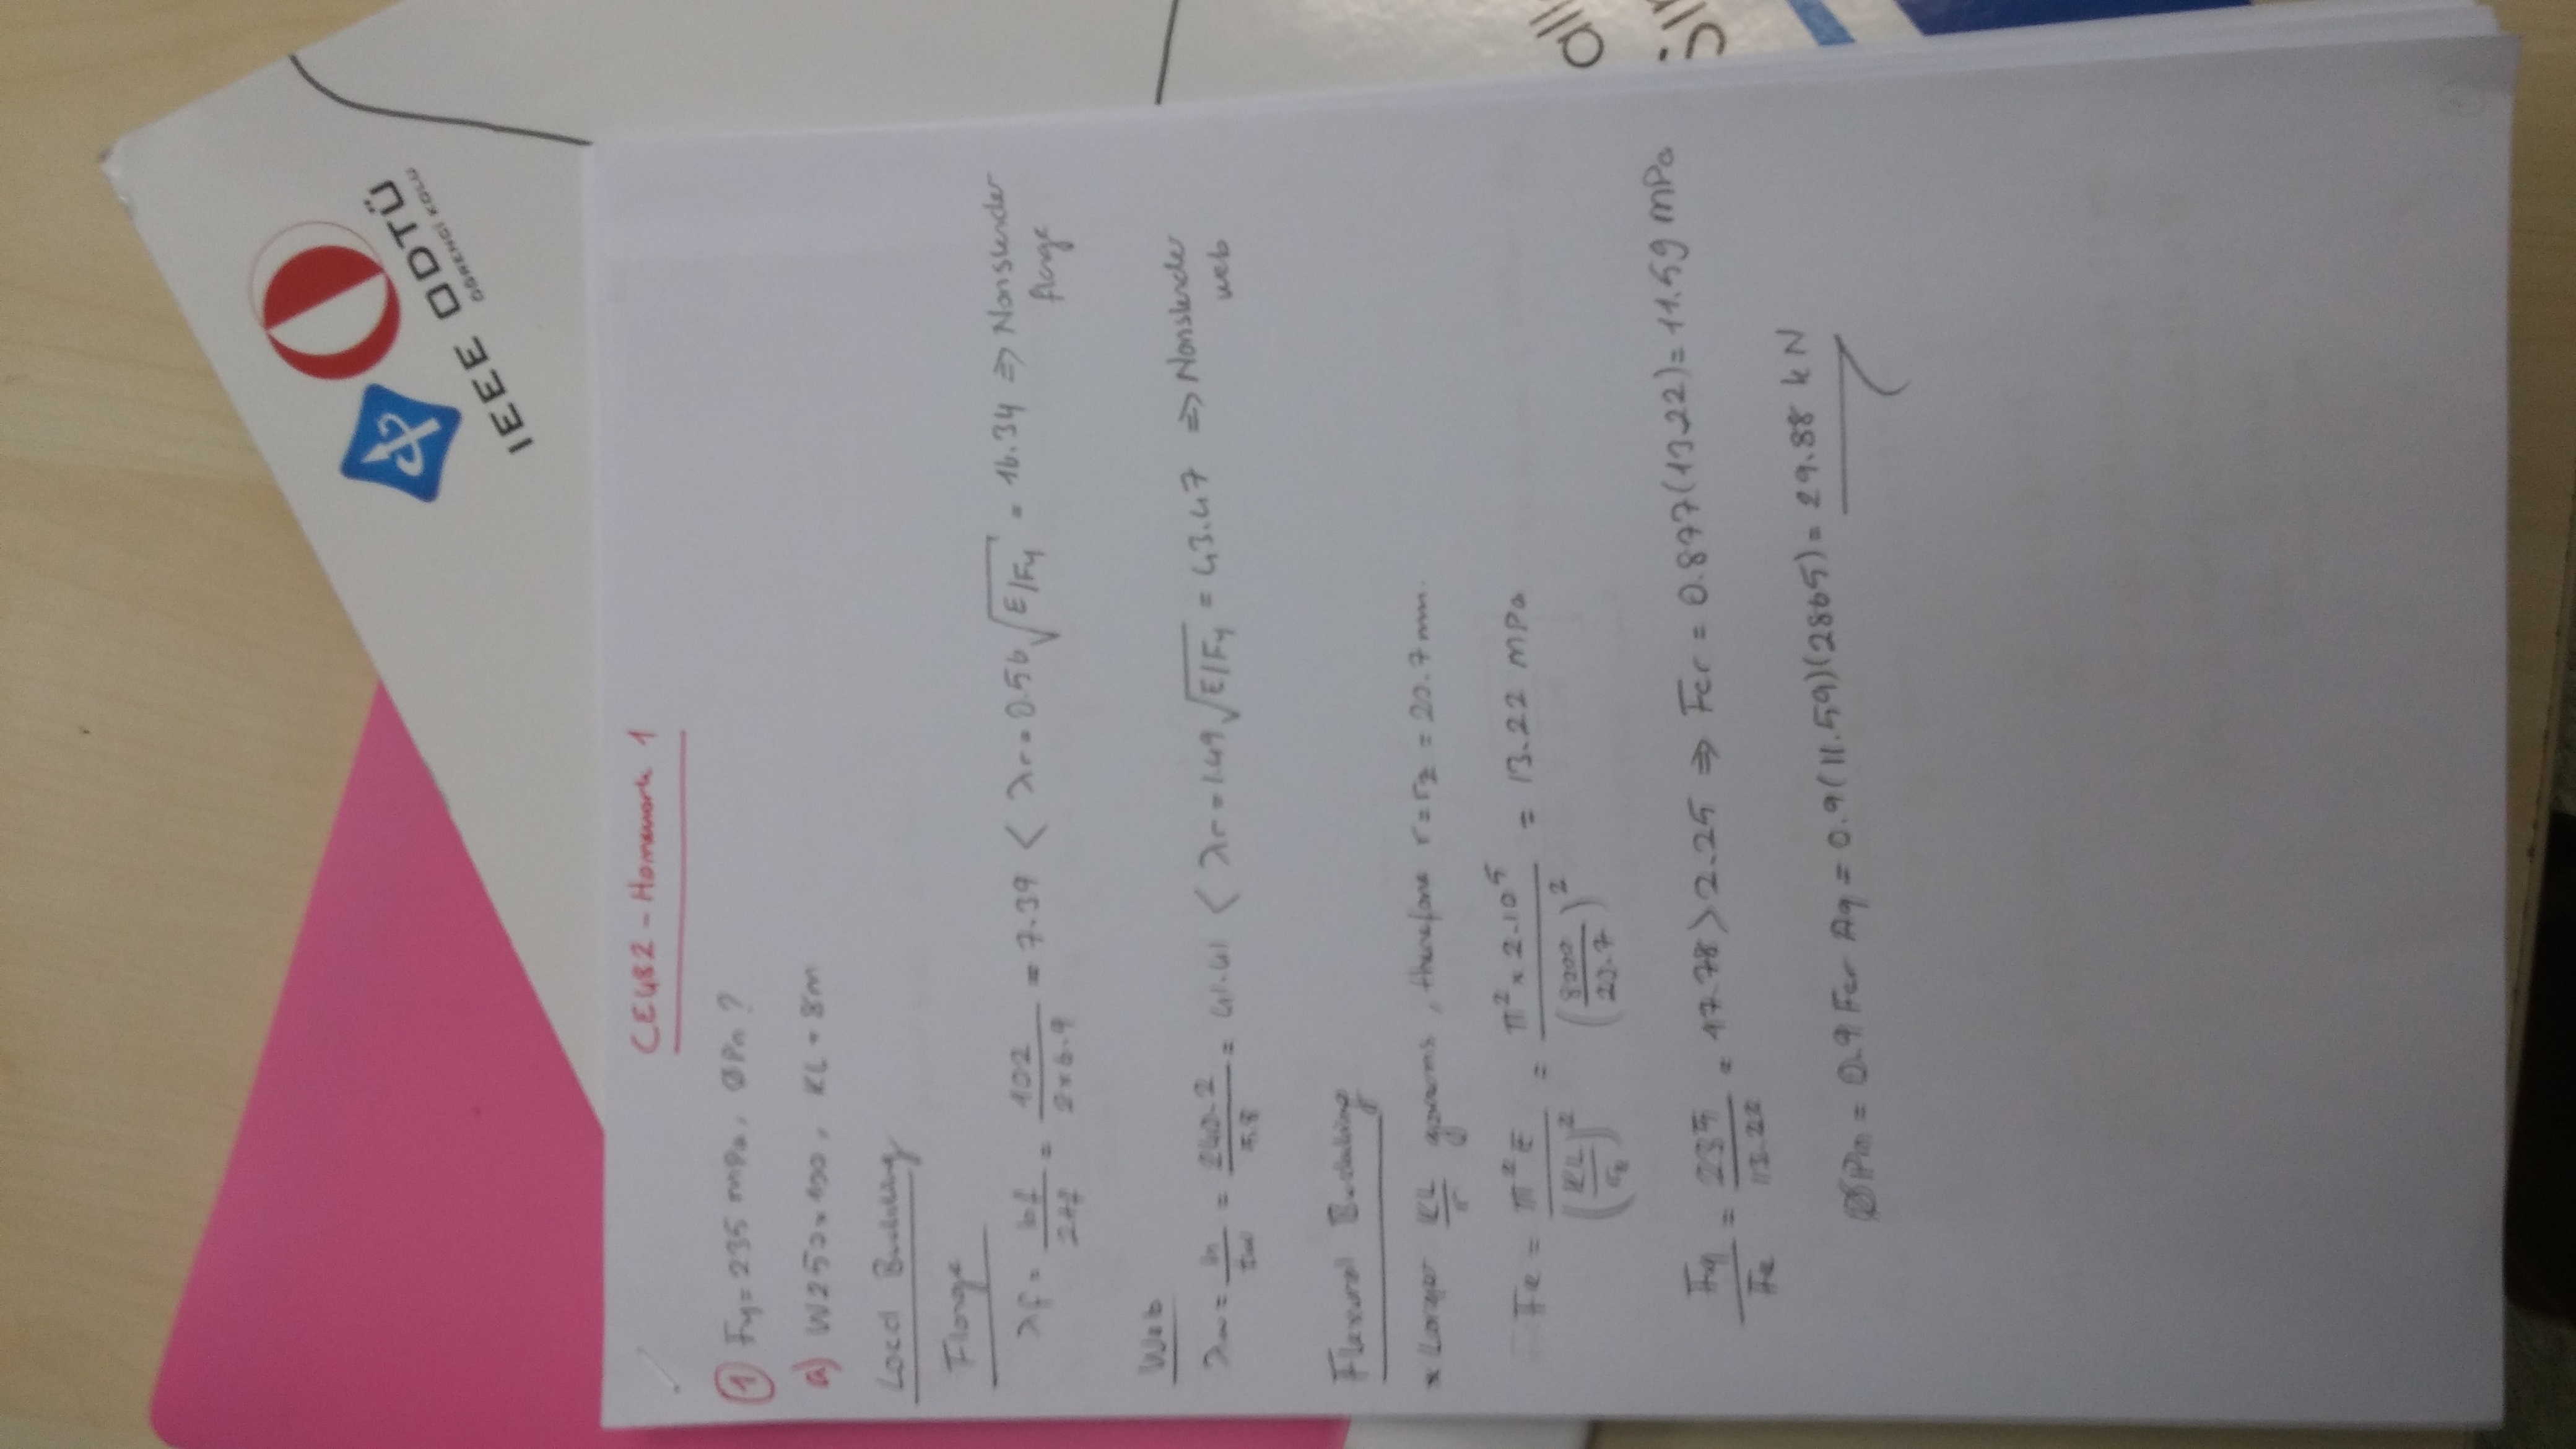 IEEE ODTÜ
ÖĞRENCİ KOLU
CE482 - Homework 1
① Fy = 235 mPa, ØPn ?
a) W250×100, KL = 8m
Local Buckling
Flange
λf = bf/2tf = 102/2×6.9 = 7.39 < λr = 0.56 √E/Fy = 16.34 ⇒ Nonslender flange
Web
λw = h/tw = 240.2/5.8 = 41.41 < λr = 1.49 √E/Fy = 43.47 ⇒ Nonslender web
Flexural Buckling
* Larger KL/r governs, therefore r = rz = 20.7 mm.
Fe = π²E/(KL/rz)² = π² × 2.10⁵/(8000/20.7)² = 13.22 mPa
Fy/Fe = 235/13.22 = 17.78 > 2.25 ⇒ Fcr = 0.877(13.22) = 11.59 mPa
ØPn = 0.9 Fcr Ag = 0.9(11.59)(2865) = 29.88 kN
all